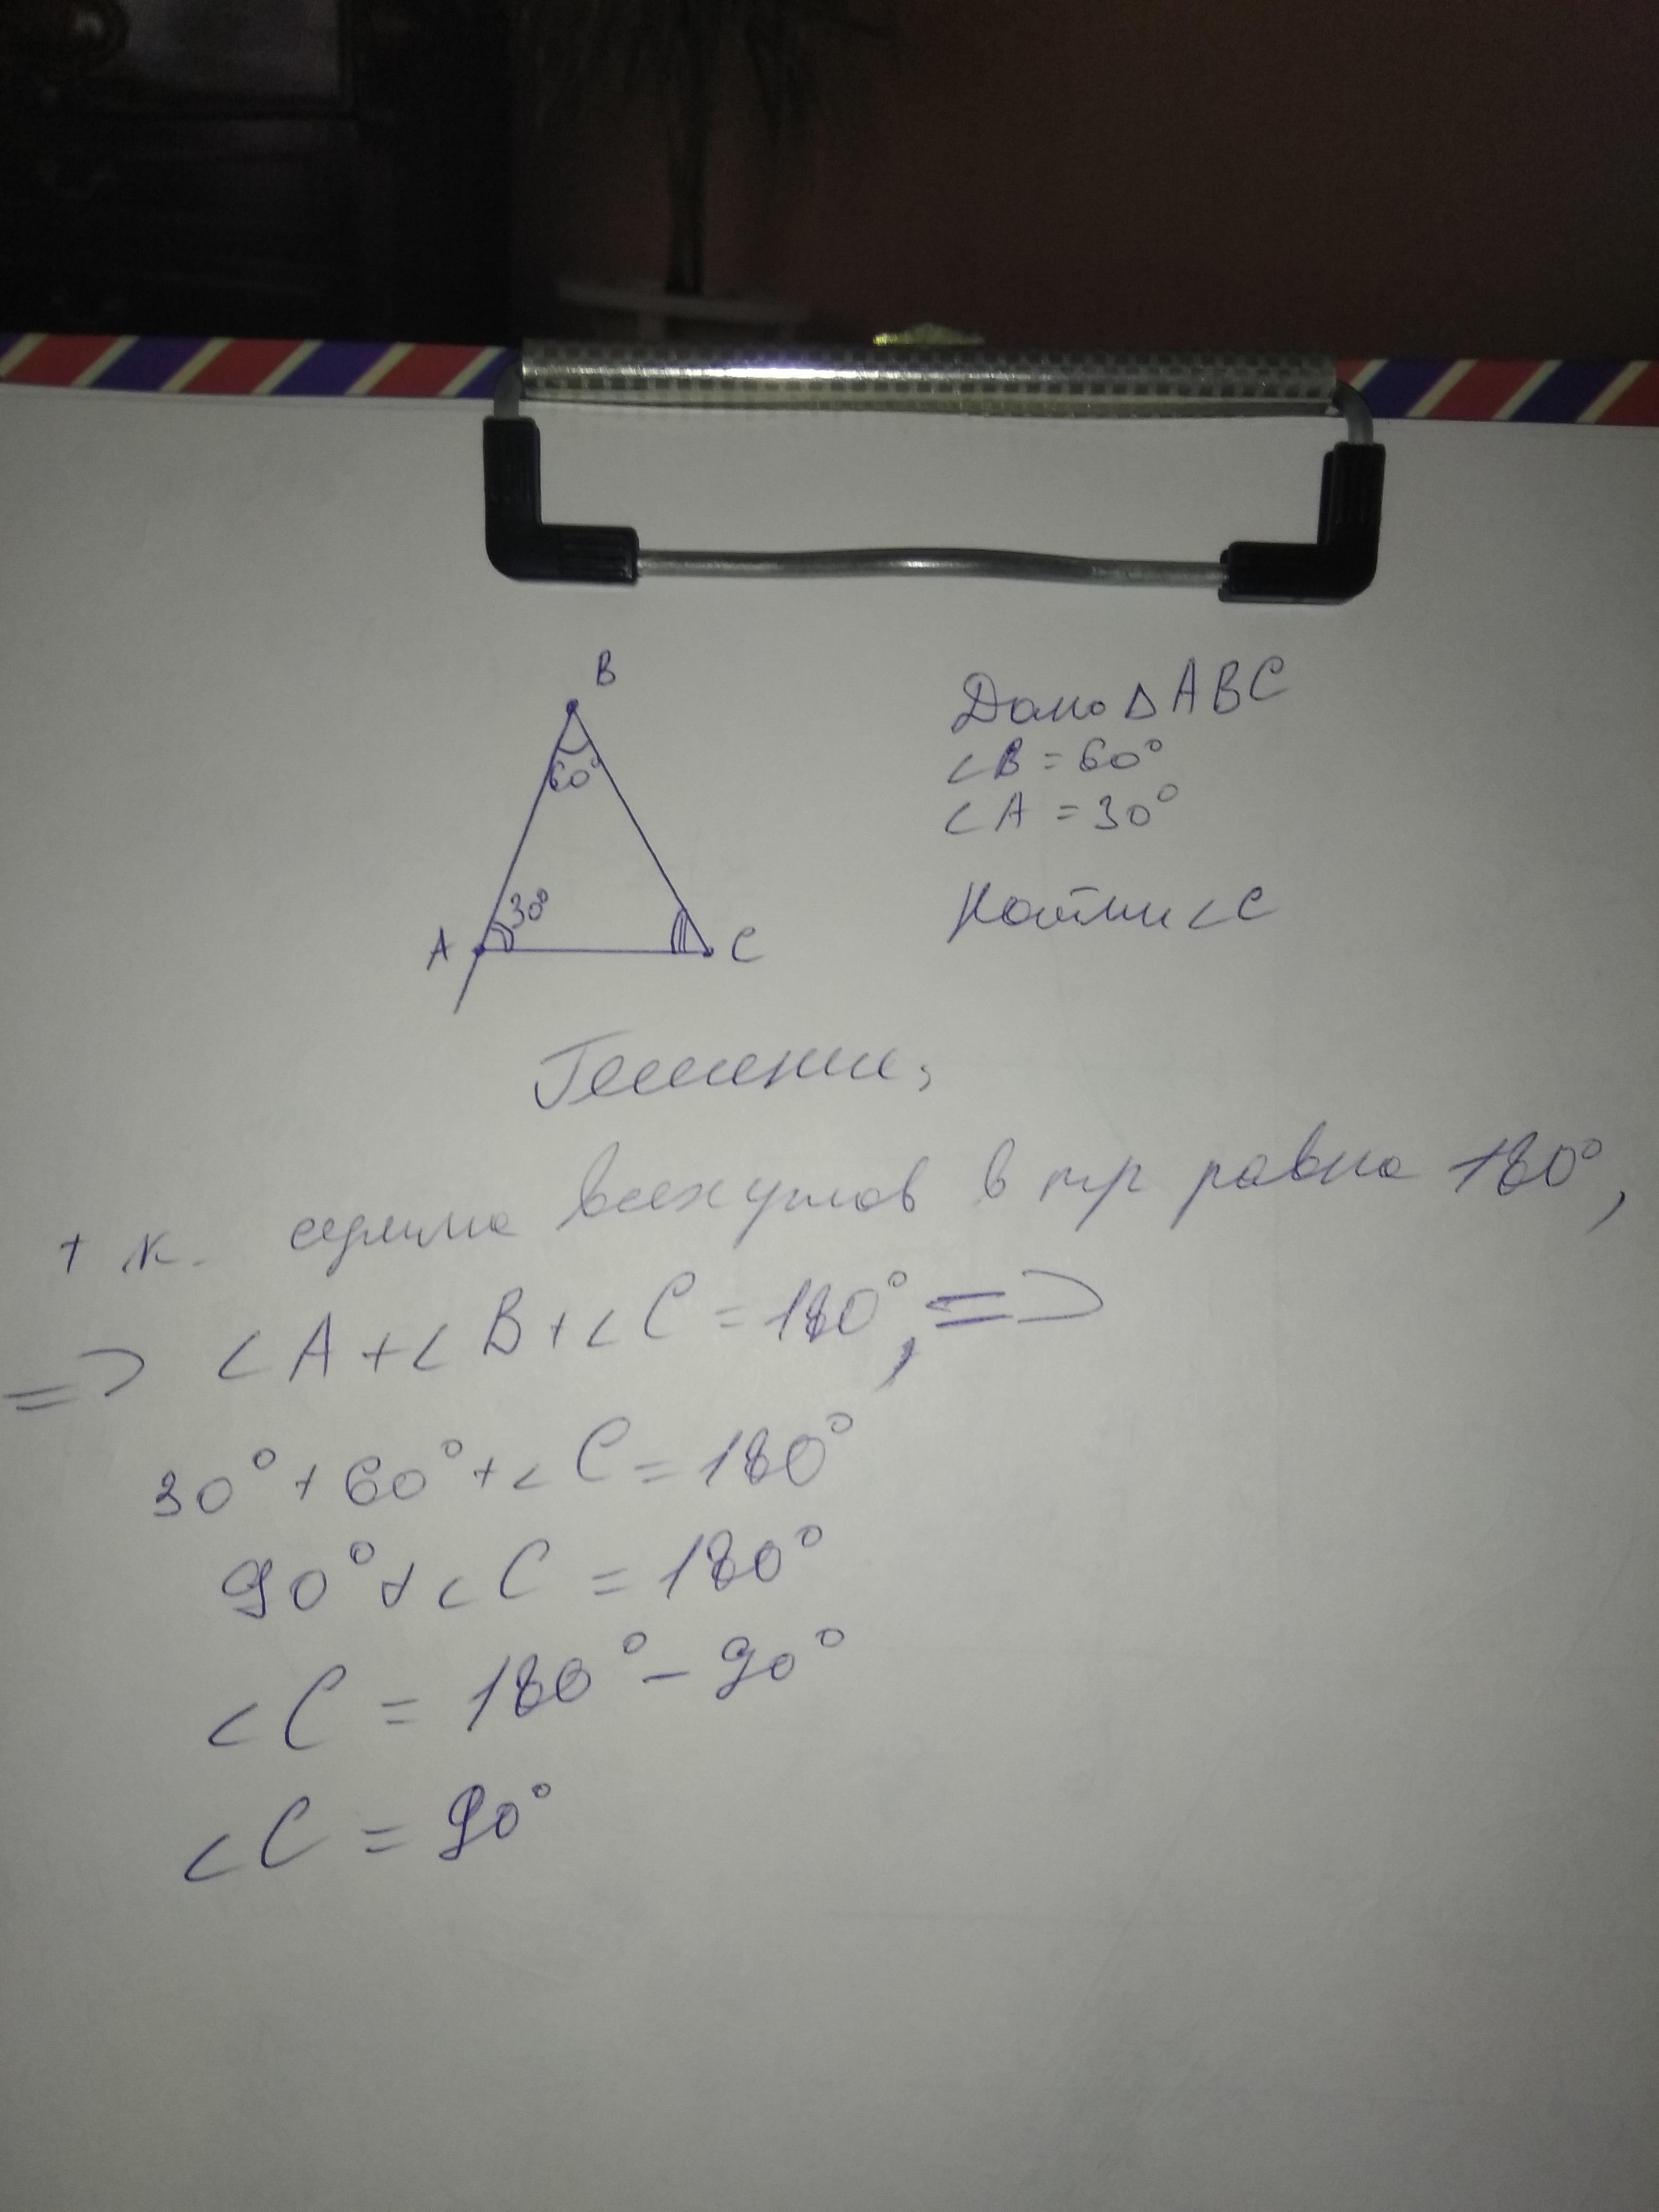 B
60°
30°
A
C
Дано △ ABC
∠B = 60°
∠A = 30°
Найти ∠C
Решение,
т к. сумма всех углов в тр равна 180°,
=> ∠A + ∠B + ∠C = 180°, =>
30° + 60° + ∠C = 180°
90° + ∠C = 180°
∠C = 180° - 90°
∠C = 90°